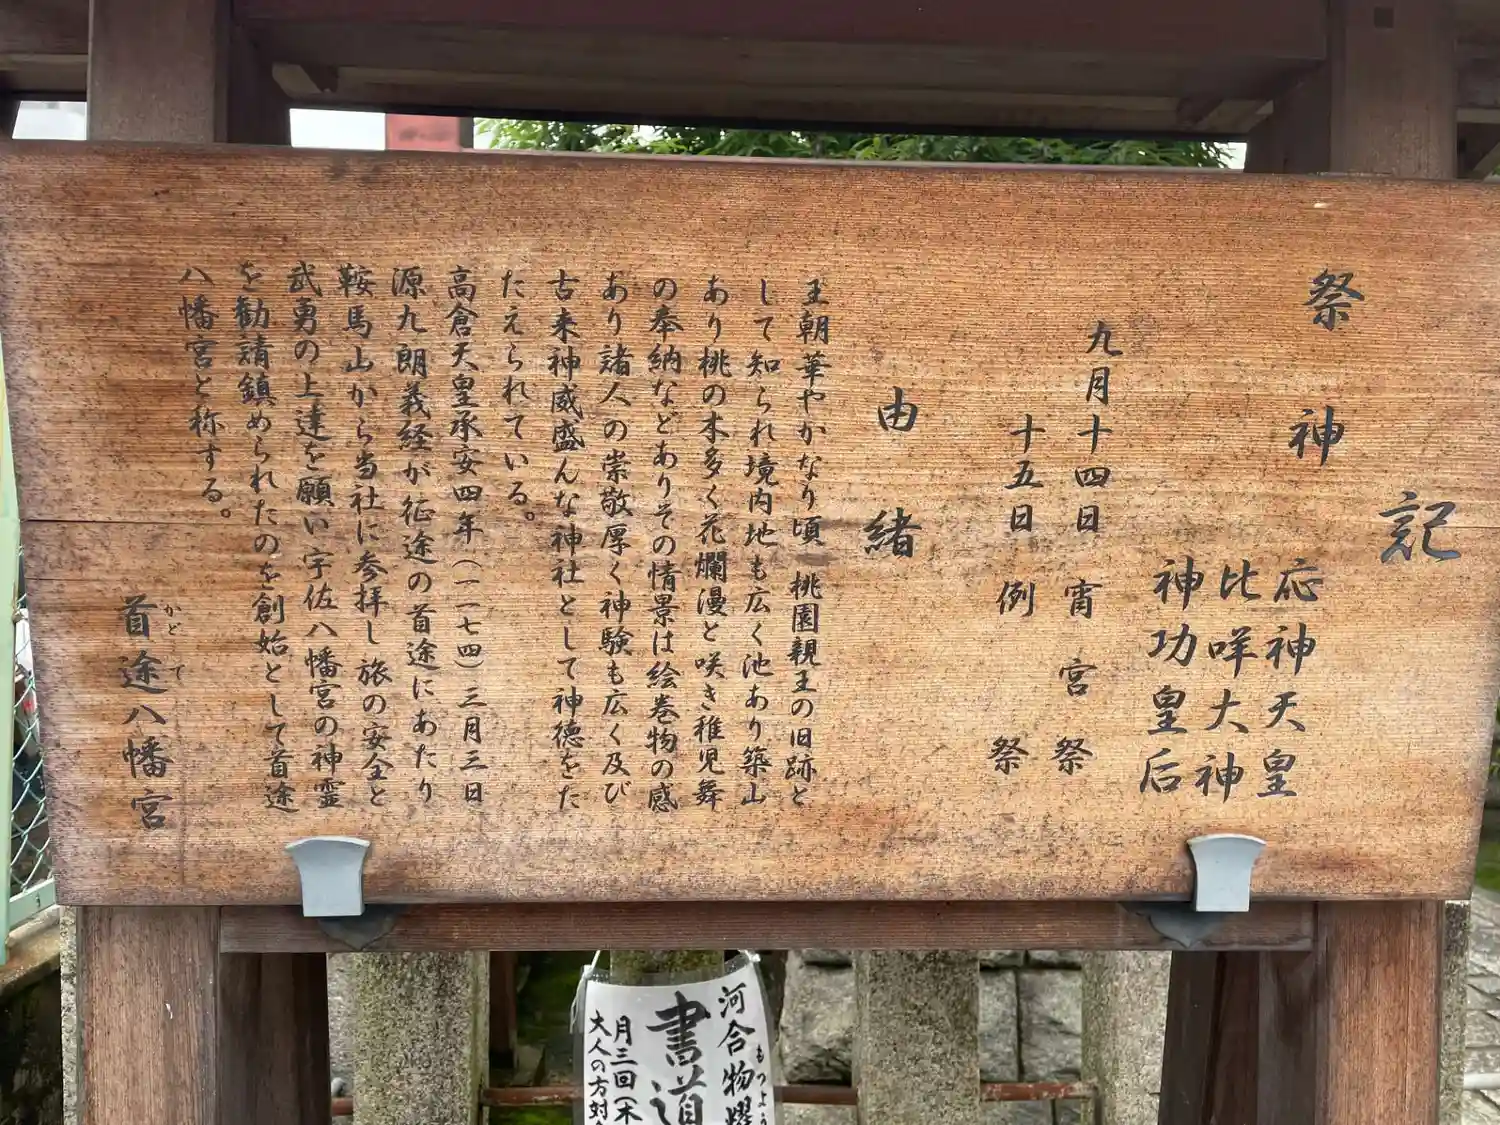 記
祭神
応神天皇
比咩大神
神功皇后
九月十四日 宵宮祭
十五日 例祭
由緒
王朝華やかなり頃 桃園親王の旧跡と
して知られ境内地も広く池あり築山
あり桃の木多く花爛漫と咲き稚児舞
の奉納などありその情景は絵巻物の感
あり諸人の崇敬厚く神験も広く及び
古来神威盛んな神社として神徳をた
たえられている。
高倉天皇承安四年(一一七四)三月三日
源九朗義経が征途の首途にあたり
鞍馬山から当社に参拝し旅の安全と
武勇の上達を願い宇佐八幡宮の神霊
を勧請鎮められたのを創始として首途
八幡宮と称する。
首途八幡宮
かどで
河合物燿
もつよう
書道
月三回(木
大人の方対